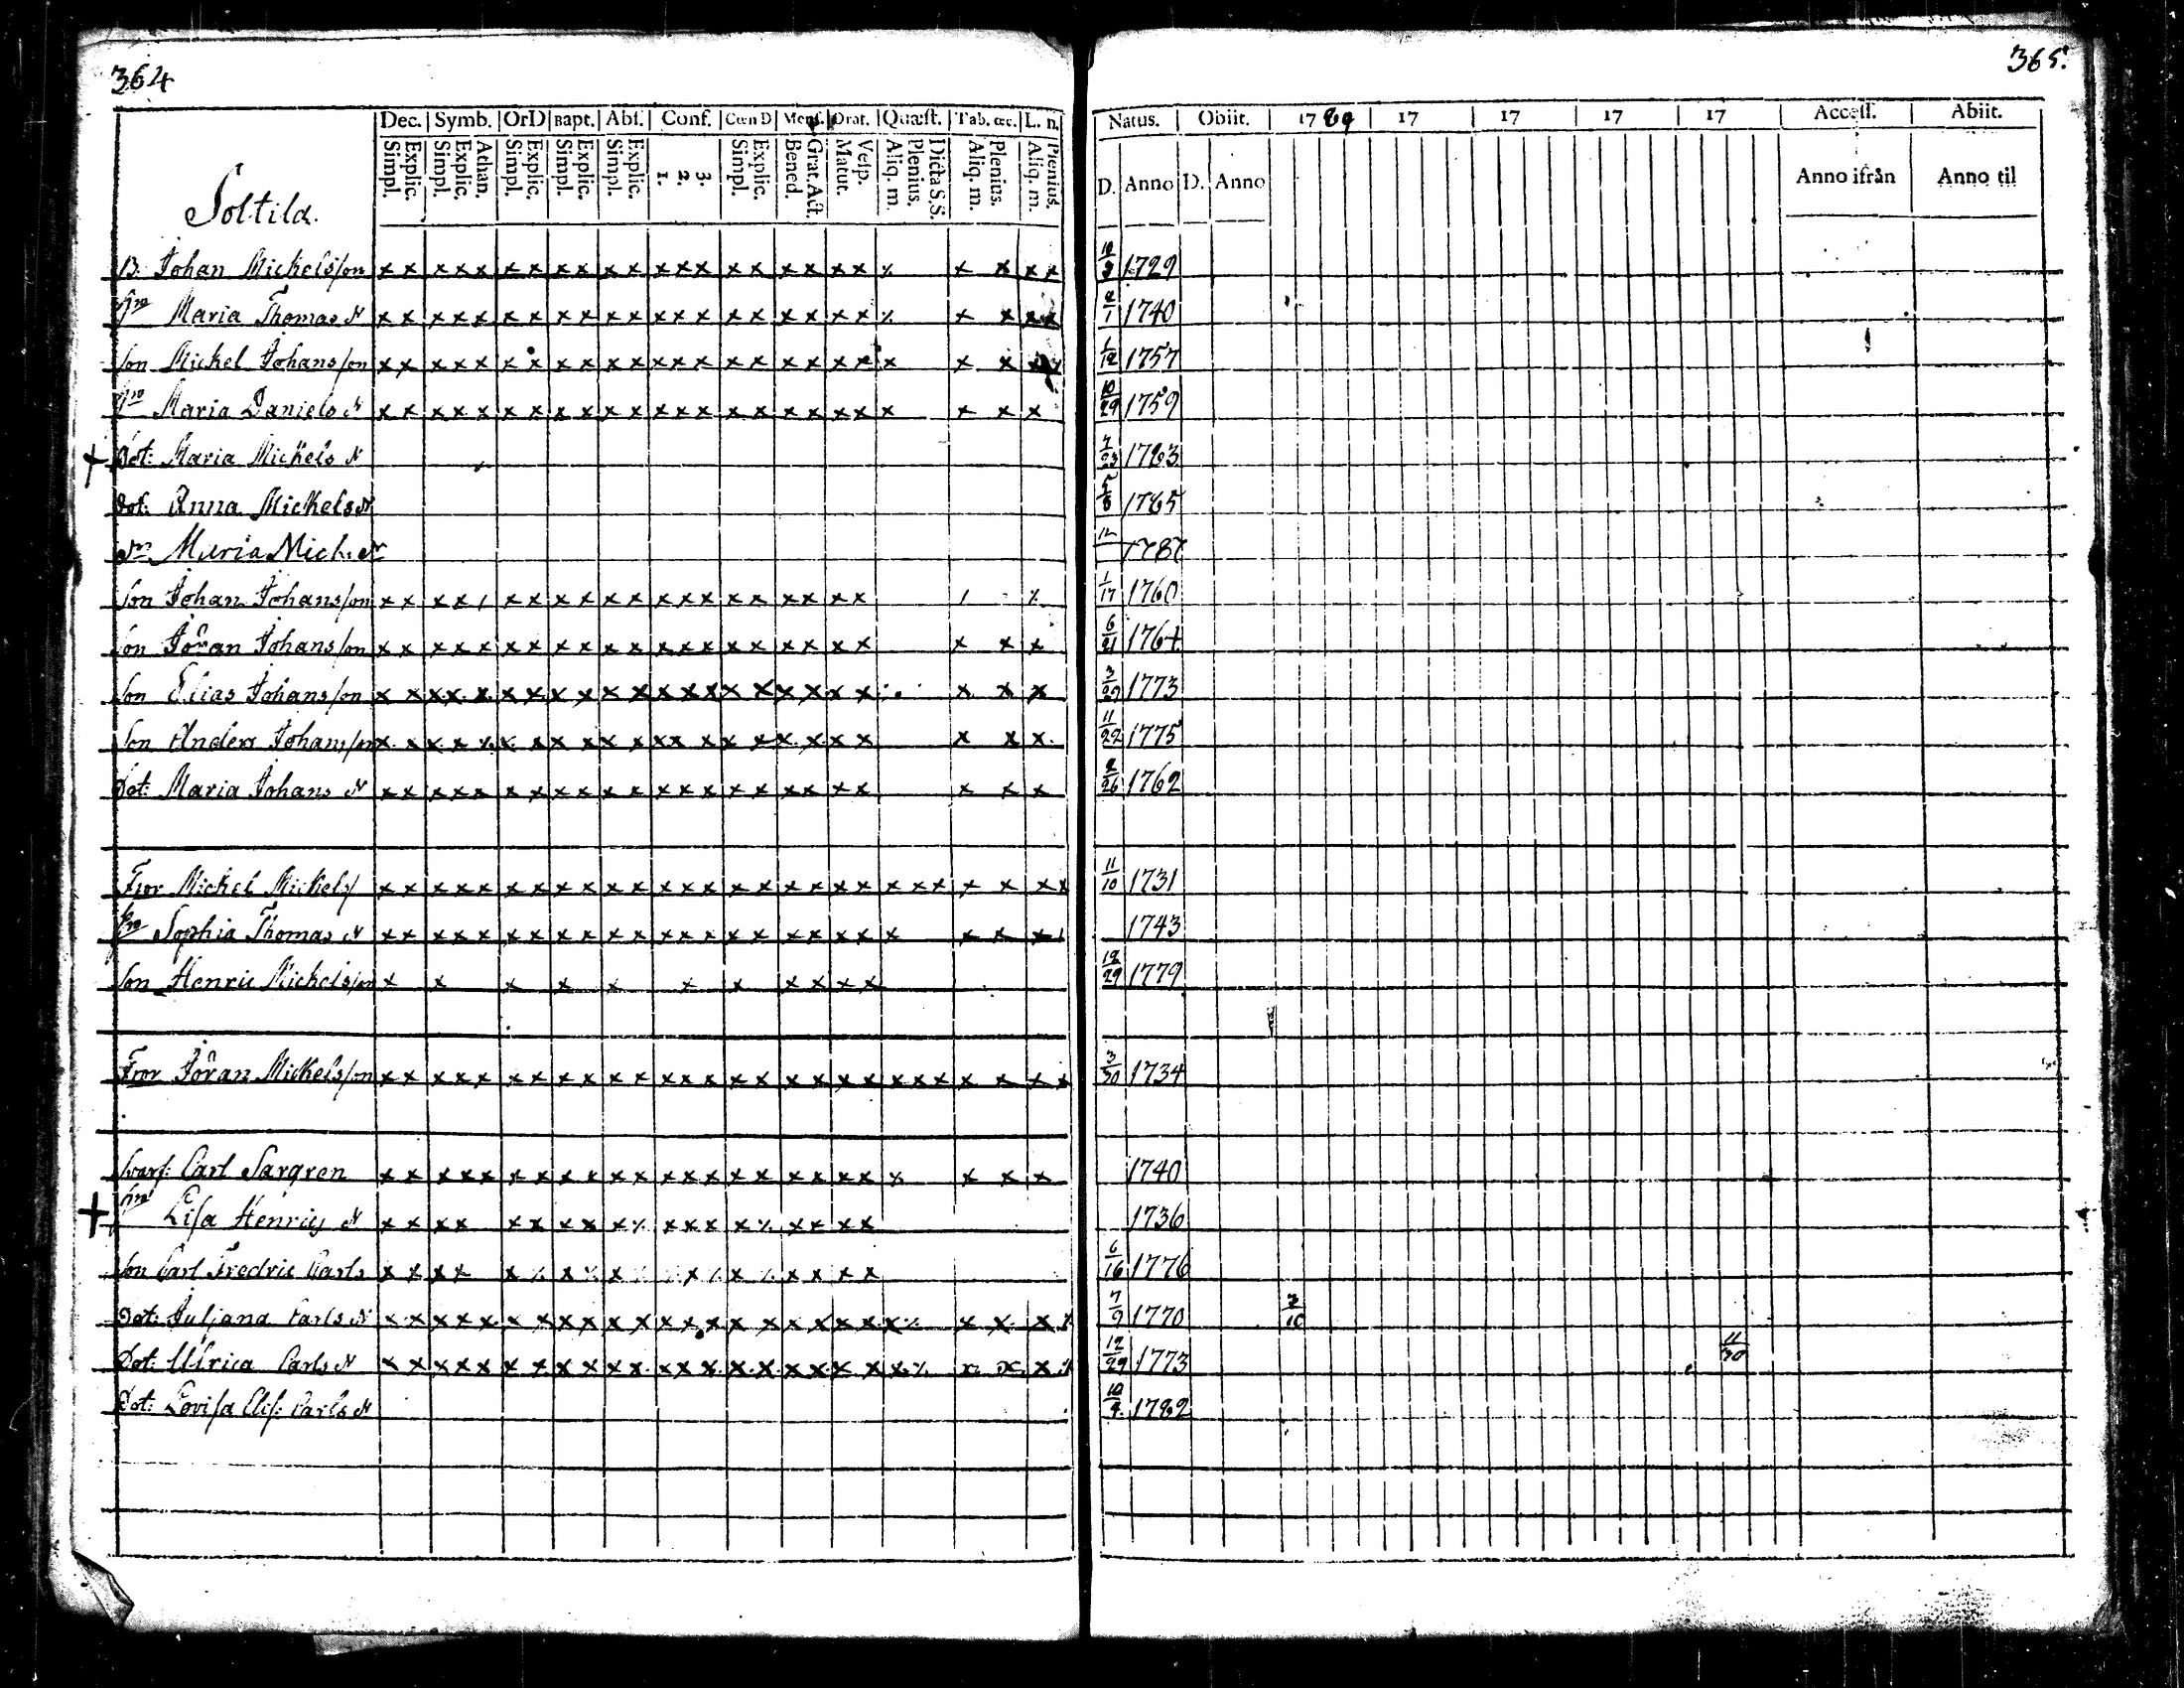 364
365.
Dec. Symb. OrD Bapt. Abs. Conf. Cœn D Mens. Orat. Quæst. Tab. œc. L. n.
Natus. Obiit. 1789 17 17 17 17 Access. Abiit.
Simpl. Explic. Simpl. Explic. Athan. Simpl. Explic. Simpl. Explic. Simpl. Explic. 1. 2. 3. Simpl. Explic. Bened. Grat. Act. Matut. Vesp. Aliq. m. Plenius. Dicta S.S. Aliq. m. Plenius. Aliq. m. Plenius.
D. Anno D. Anno Anno ifrån Anno til
Soltila.
B. Johan Mickelsson x x x x x x x x x x x x x x x x x x x x x x x x 10/3 1729
Maria Thomas N x x x x x x x x x x x x x x x x x x x x x x x 1740
Son Mickel Johansson x x x x x x x x x x x x x x x x x x x x x x x 1/12 1757
Maria Daniels N x x x x x x x x x x x x x x x x x x x x x x x x 10/29 1759
+ Dot: Maria Mickels N 1783
Dot: Anna Mickels N 1785
Maria Mich: N 12 1787
Son Johan Johansson x x x x x x x x x x x x x x x x x x 1/17 1760
Son Jöran Johansson x x x x x x x x x x x x x x x x x x x x x x x 6/21 1764
Son Elias Johansson x x x x x x x x x x x x x x x x x x x x x x 3/29 1773
Son Anders Johansson x x x x x x x x x x x x x x x x x x x x x x 11/22 1775
Dot: Maria Johans N x x x x x x x x x x x x x x x x x x x x x x 2/26 1762
Fror Mickel Mickels x x x x x x x x x x x x x x x x x x x x x x x x x x 11/10 1731
Sophia Thomas N x x x x x x x x x x x x x x x x x x x x x x x 1743
Son Henric Mickelsson x x x x x x x x x x x 12/29 1779
Fror Jöran Mickelsson x x x x x x x x x x x x x x x x x x x x x x x x x x 3/30 1734
Carl Sargren x x x x x x x x x x x x x x x x x x x x x x x 1740
+ Lisa Henrics N x x x x x x x x x x x x x x x x x 1736
Son Carl Fredric Carls x x x x x x x x x x x x x 6/16 1776
Dot: Juljana Carls N x x x x x x x x x x x x x x x x x x x x x x x 7/9 1770 3/10
Dot: Ulrica Carls N x x x x x x x x x x x x x x x x x x x x x x x 12/29 1773 11/30
Dot: Lovisa Elis: Carls N 10/4 1782